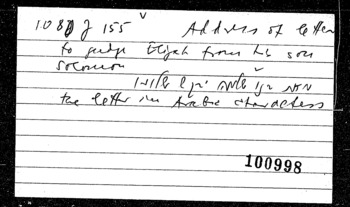 1080 J 155 Address of letter
to judge Elijah from his son
Solomon
the letter in Arabic characters
100998